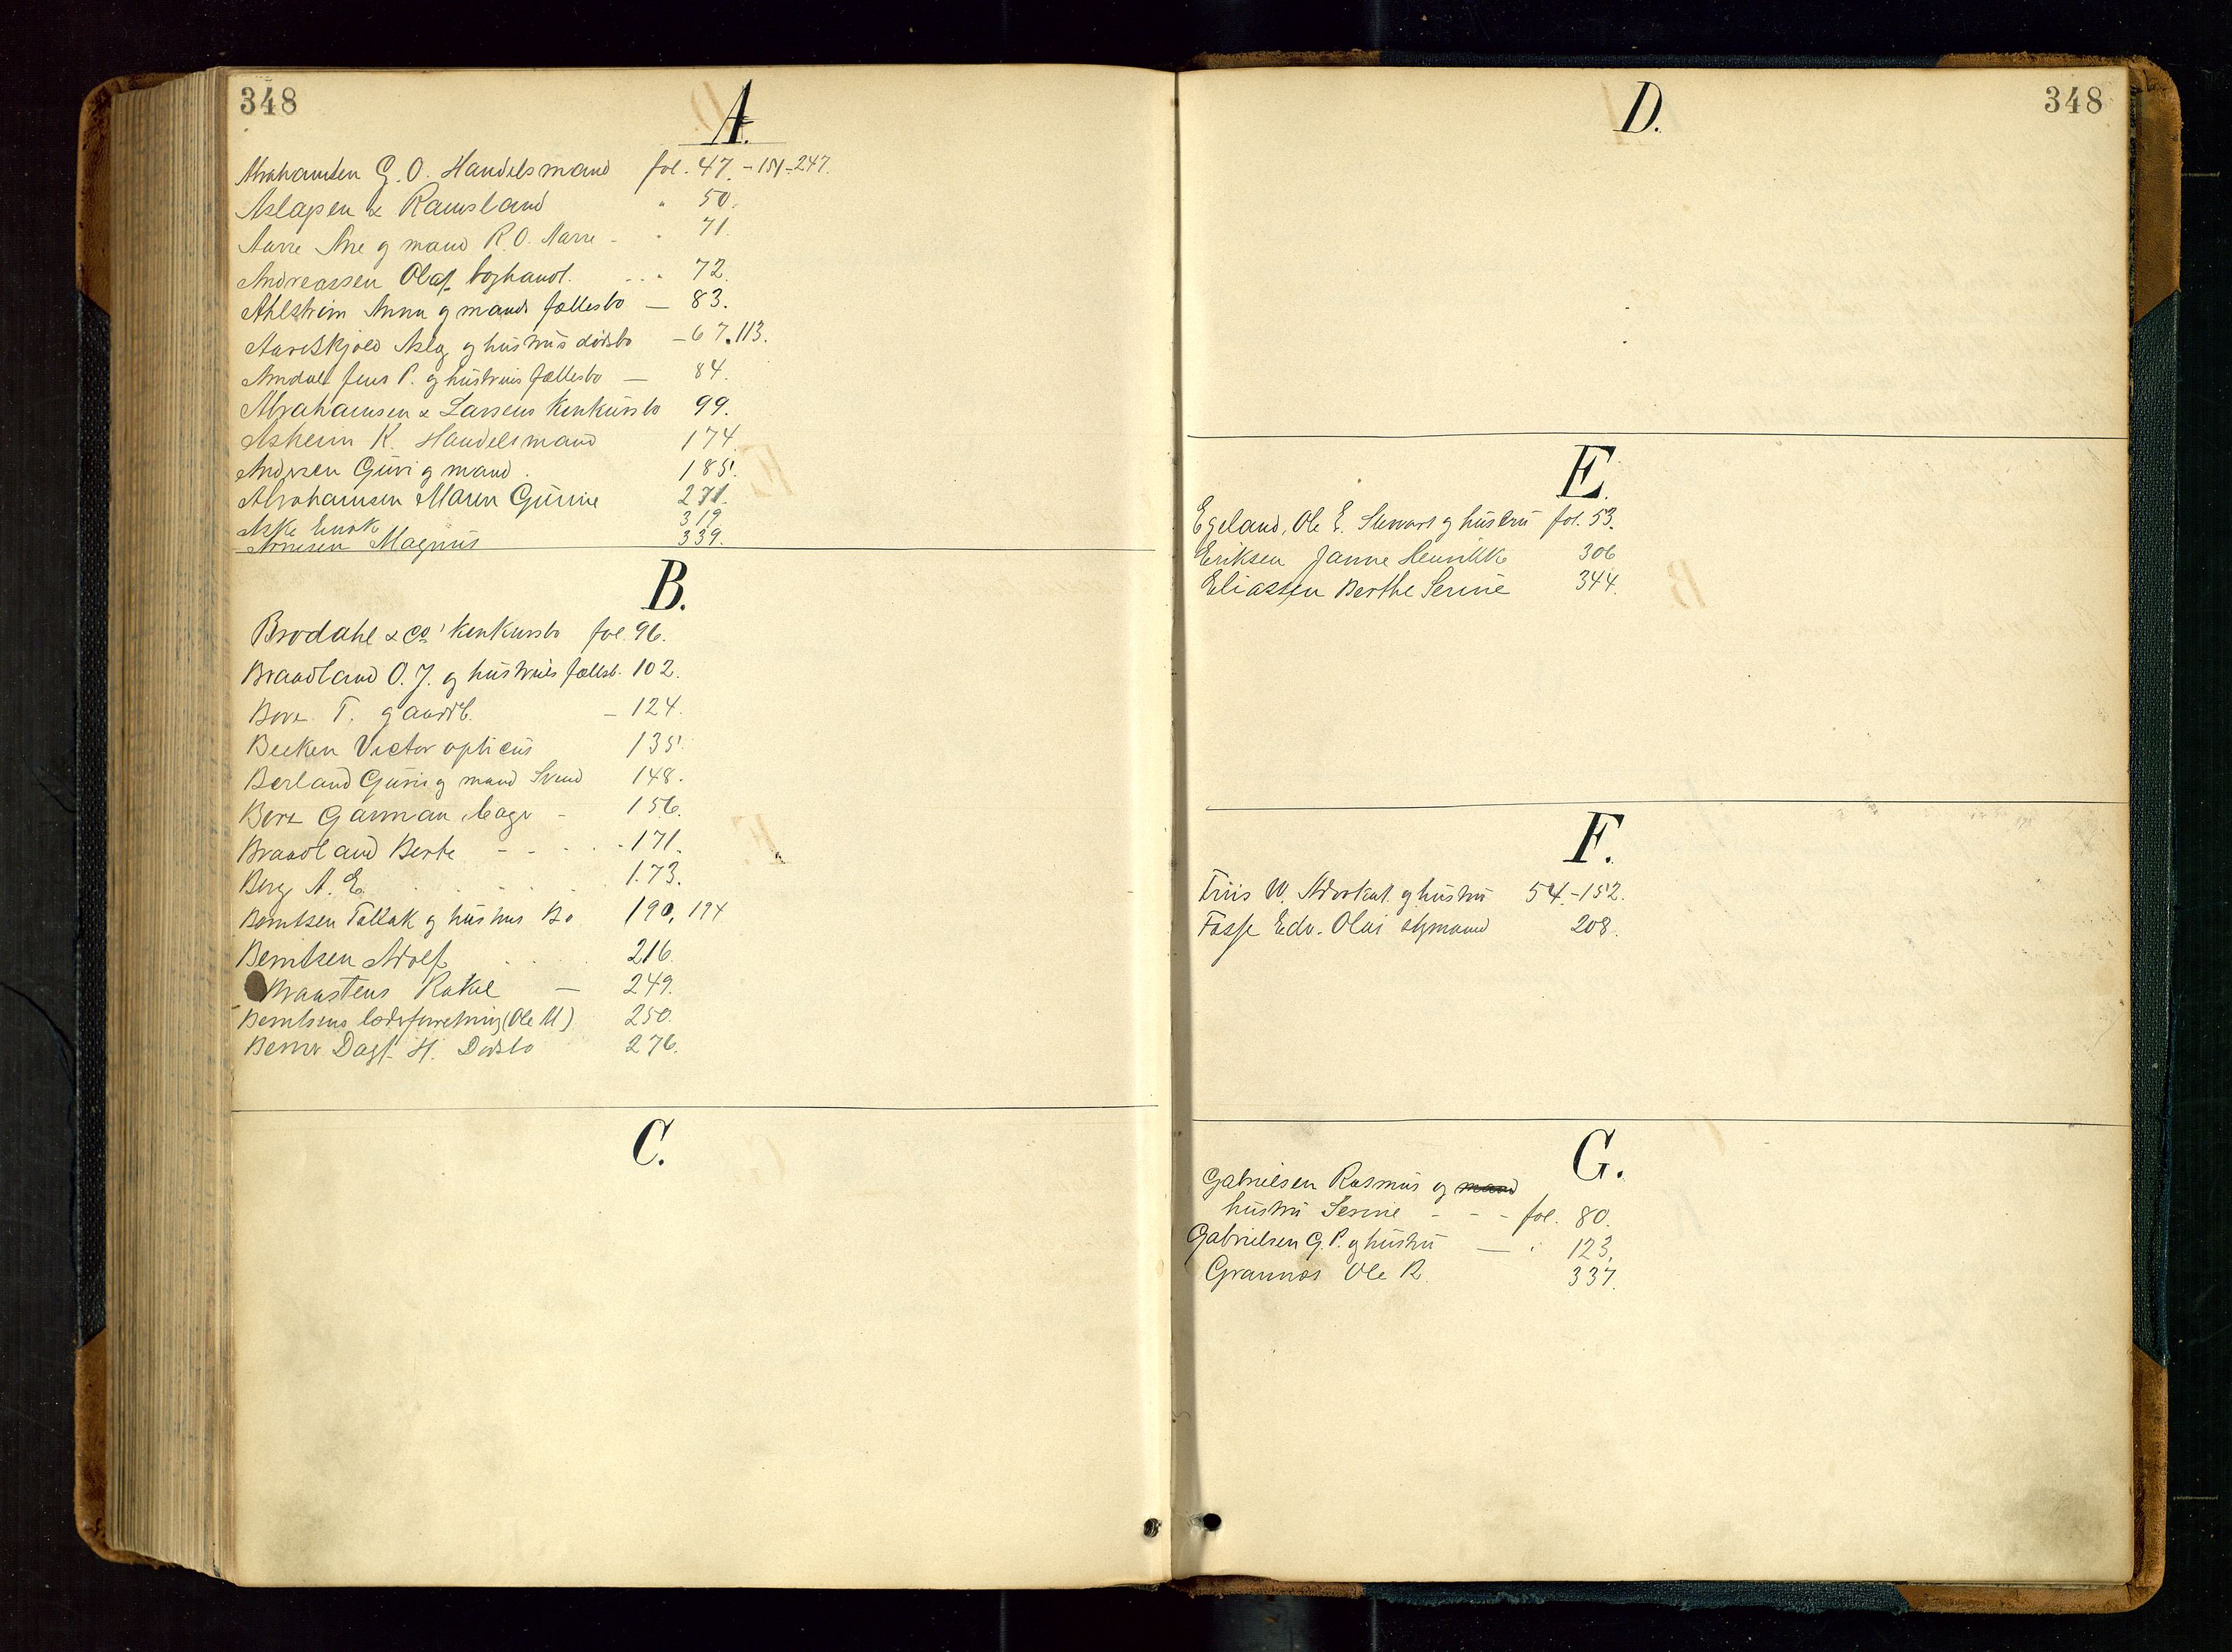 348
A.
Abrahamsen G. O. Handelsmand fol. 47. - 151 - 247.
Aslaksen & Ramsland " 50.
Aarre Ane og mand R. O. Aarre - " 71.
Andreassen Olaf boghandl. 72.
Ahlstrøm Anna og mands fællesbo — 83.
Aareskjold Aslag og hustrus dødsbo - 67. 113.
Arndal Jens P. og hustrus fællesbo — 84.
Abrahamsen & Larsens Konkursbo 99.
Asheim K. Handelsmand 174
Andersen Guri og mand. 185.
Abrahamsen Maren Gurine 271.
Aske Enok 319
Arnesen Magnus 339.
B.
Brodahl & Co's Konkursbo fol. 96.
Braadland O. J. og hustrus fællesb. 102.
Bore T. g 124.
Becken Victor opticus 135.
Berland Guri og mand Svend 148.
Bore Garman bager - 156.
Braadland Berte - - - - 171.
Berg A. E. 173.
Berntsen Tallak og hustrus Bo 190, 194
Berntsen Adolf 216.
Braasteins Rakel — 249.
Berntsens læderforretning (Ole M) 250.
Berner Dagf. H. Dødsbo 276.
C.
348
D.
E.
Egeland, Ole E. Stuvert og hustru fol. 53.
Eriksen Janne Henrikke 306
Eliassen Berthe Serine 344.
F.
Friis W. Advokat og hustru 54. - 152.
Fosse Edv. Olai 208.
G.
Gabrielsen Rasmus og mand
hustru Serine - - - fol. 80.
Gabrielsen G. P. og hustru — " 123.
Grannæs Ole R. 337.